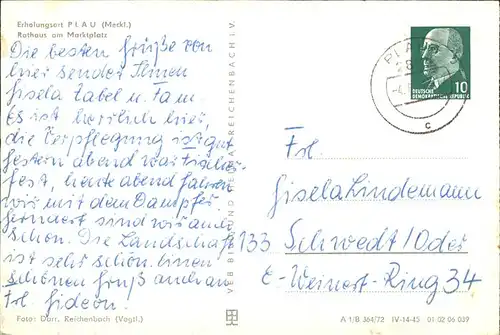 Erholungsort PLAU (Meckl.)
Rathaus am Marktplatz
Die besten Grüße von
hier sendet Ihnen
Gisela Zabel u. Fam.
Es ist herrlich hier,
die Verpflegung ist gut
gestern abend war Fischer-
fest, heute abend fahren
wir mit dem Dampfer.
sind wir auch
schon. Die Landschaft
ist sehr schön. Einen
schönen Gruß auch an
Frl. Gideon.
Foto: Darr, Reichenbach (Vogtl.)
VEB BILD UND HEIMAT REICHENBACH I. V.
PLAU
c
DEUTSCHE
DEMOKRATISCHE REPUBLIK
10
Frl.
Gisela Lindemann
133 Schwedt/Oder
E-Weinert-Ring 34
A 1/B 364/72 IV-14-45 01 02 06 039